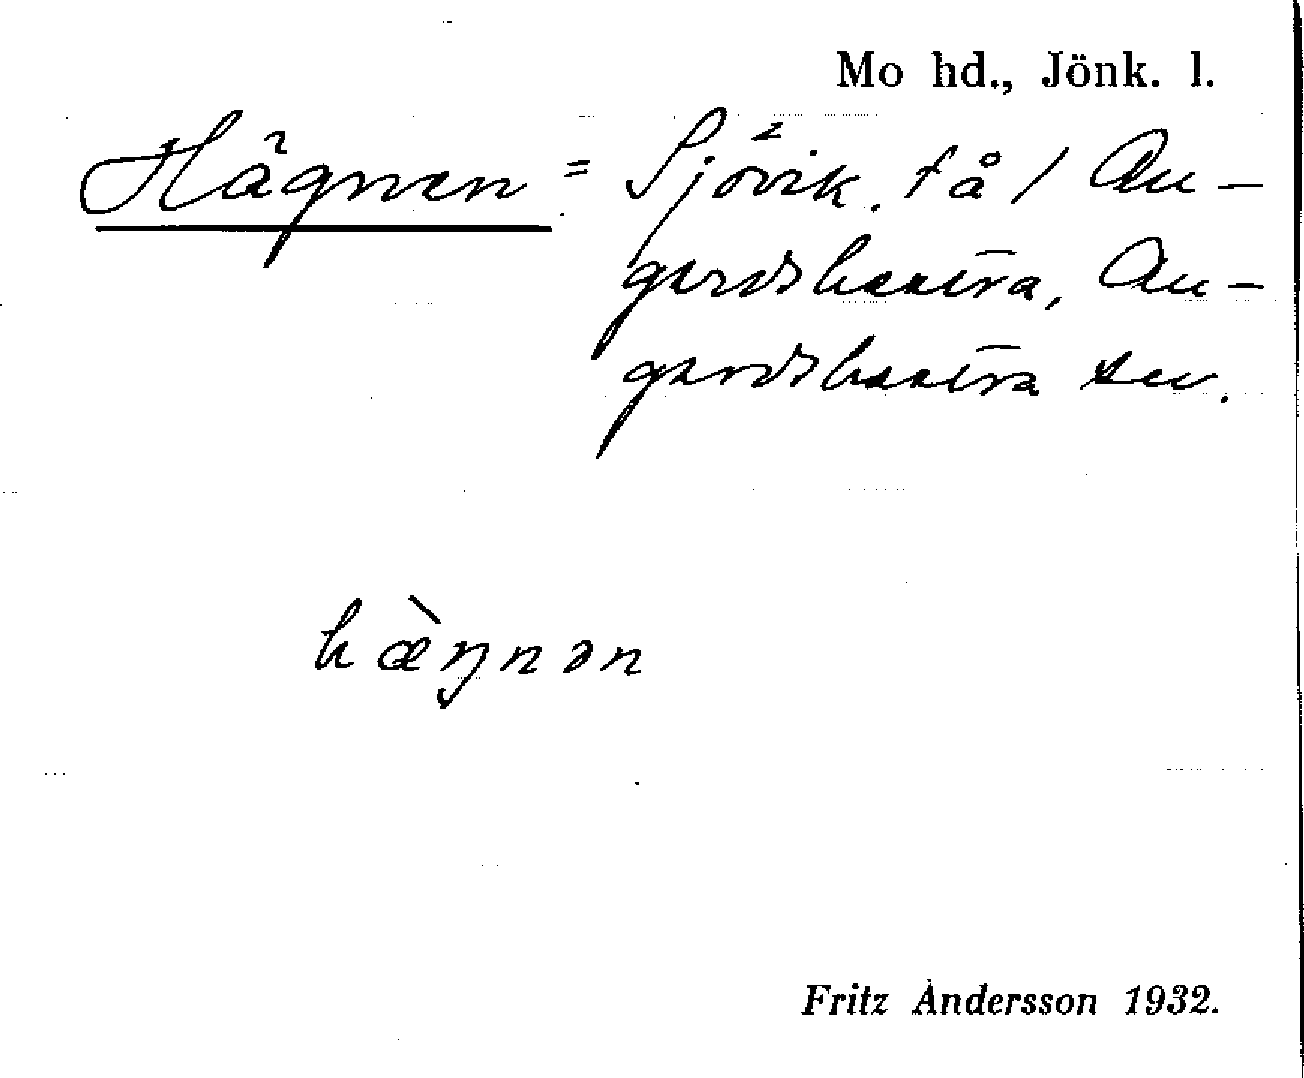 Mo hd., Jönk. l.
Hägnen = Sjövik. tå / An-
gerdshestra, An-
gerdshestra sn.
hæ̀ŋnən
Fritz Andersson 1932.